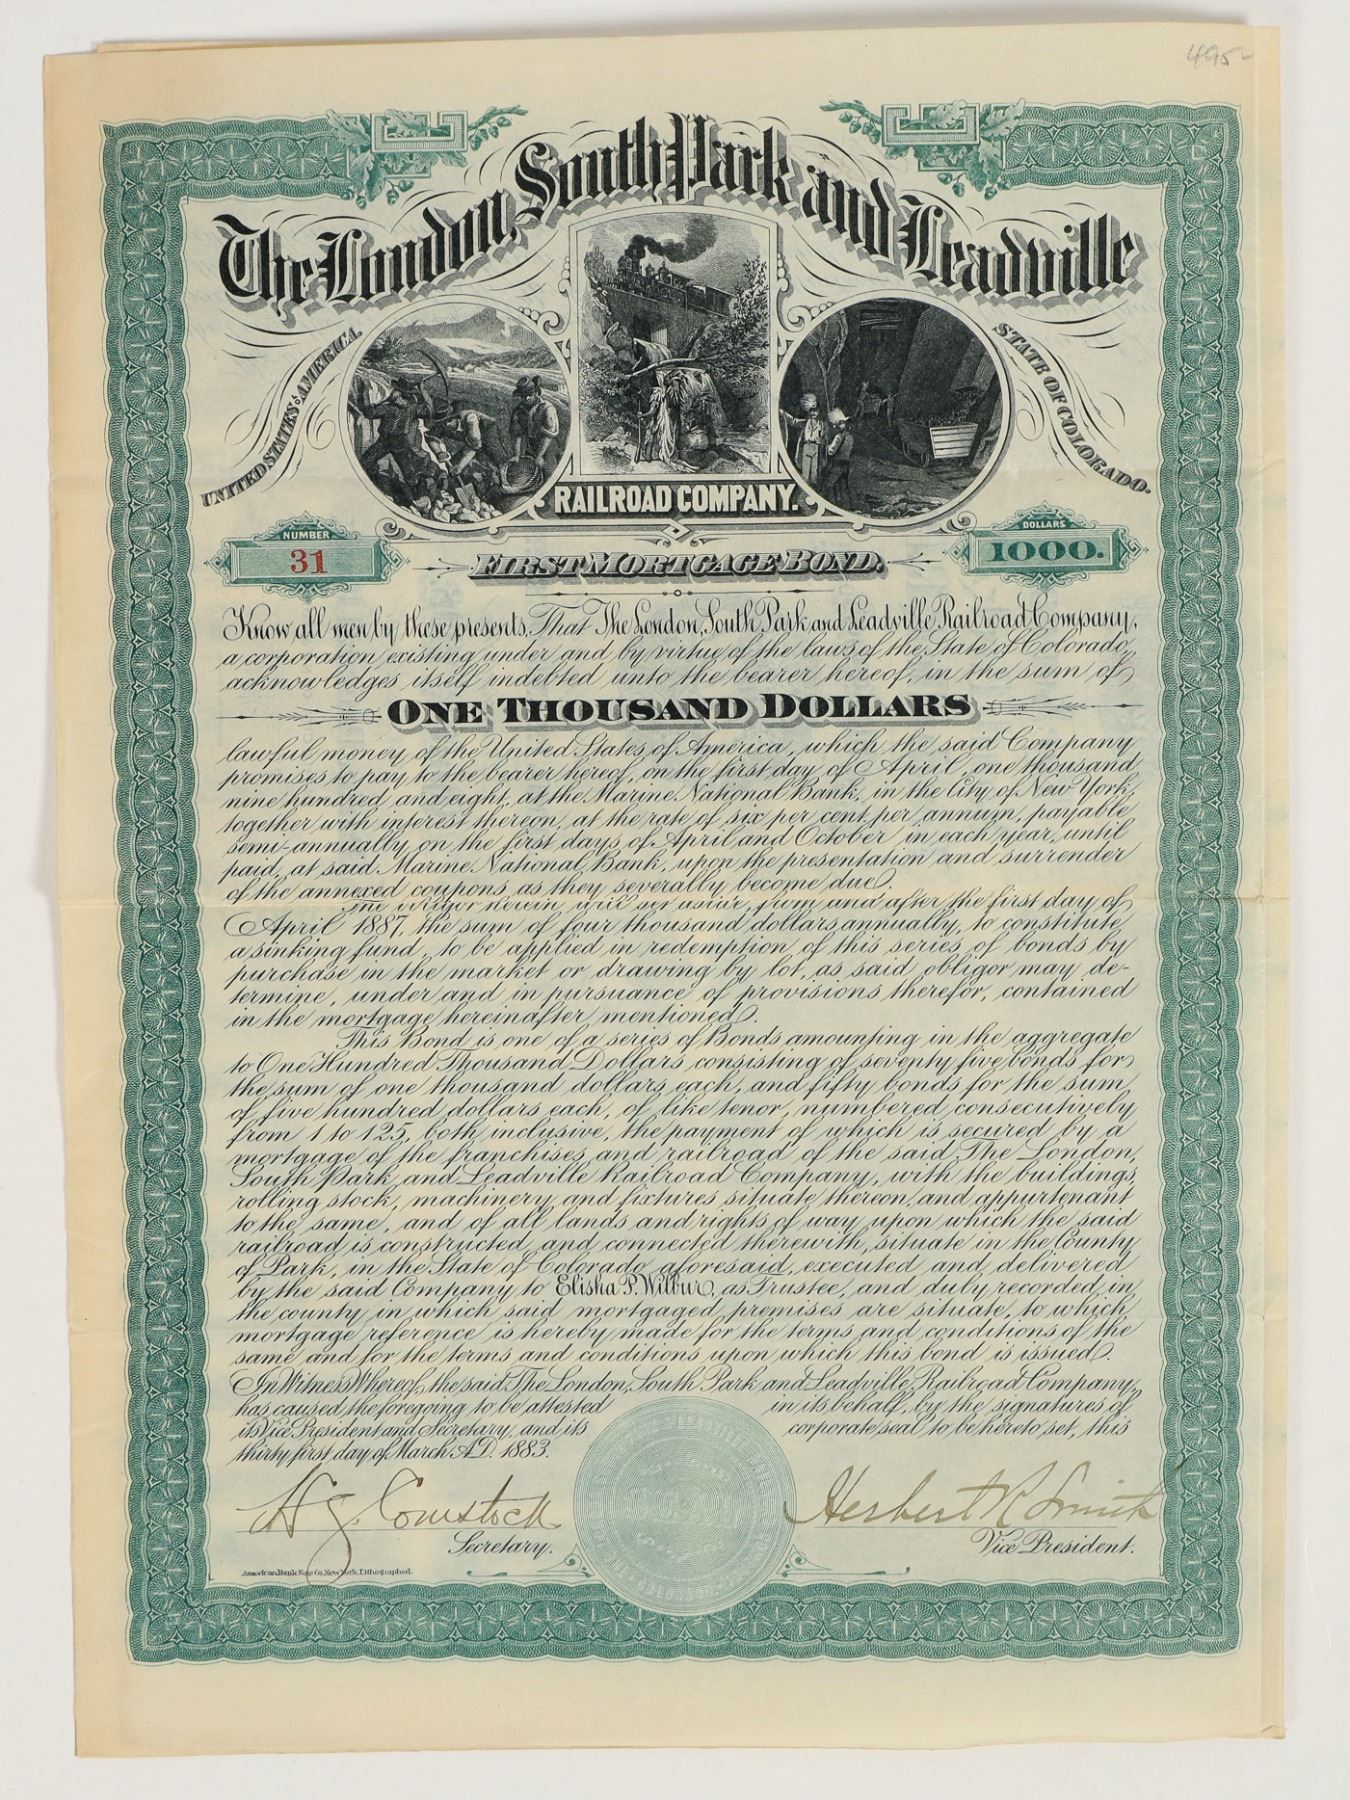 495-
The London, South Park and Leadville
UNITED STATES OF AMERICA.
STATE OF COLORADO.
RAILROAD COMPANY.
NUMBER
31
DOLLARS
1000.
FIRST MORTGAGE BOND.
Know all men by these presents, That The London, South Park and Leadville Railroad Company,
a corporation existing under and by virtue of the laws of the State of Colorado,
acknowledges itself indebted unto the bearer hereof, in the sum of
ONE THOUSAND DOLLARS
lawful money of the United States of America, which the said Company
promises to pay to the bearer hereof, on the first day of April, one thousand
nine hundred and eight, at the Marine National Bank, in the City of New York,
together with interest thereon, at the rate of six per cent. per annum, payable
semi-annually on the first days of April and October in each year, until
paid, at said Marine National Bank, upon the presentation and surrender
of the annexed coupons as they severally become due.
The obligor herein will set aside, from and after the first day of
April 1887, the sum of four thousand dollars annually, to constitute
a sinking fund, to be applied in redemption of this series of bonds by
purchase in the market or drawing by lot, as said obligor may de-
termine, under and in pursuance of provisions therefor, contained
in the mortgage hereinafter mentioned.
This Bond is one of a series of Bonds amounting in the aggregate
to One Hundred Thousand Dollars consisting of seventy five bonds for
the sum of one thousand dollars each, and fifty bonds for the sum
of five hundred dollars each, of like tenor, numbered consecutively
from 1 to 125, both inclusive, the payment of which is secured by a
mortgage of the franchises and railroad of the said The London,
South Park and Leadville Railroad Company, with the buildings,
rolling stock, machinery and fixtures situate thereon and appurtenant
to the same, and of all lands and rights of way upon which the said
railroad is constructed, and connected therewith, situate in the County
of Park, in the State of Colorado aforesaid, executed and delivered
by the said Company to Elisha P. Wilbur, as Trustee, and duly recorded in
the county in which said mortgaged premises are situate, to which
mortgage reference is hereby made for the terms and conditions of the
same and for the terms and conditions upon which this bond is issued.
In Witness Whereof, the said, The London, South Park and Leadville Railroad Company,
has caused the foregoing to be attested in its behalf, by the signatures of
its Vice President and Secretary, and its corporate seal to be hereto set, this
thirty first day of March A.D. 1883.
H G. Comstock
Secretary.
Herbert R Smith
Vice President.
American Bank Note Co. New York. Lithographed.